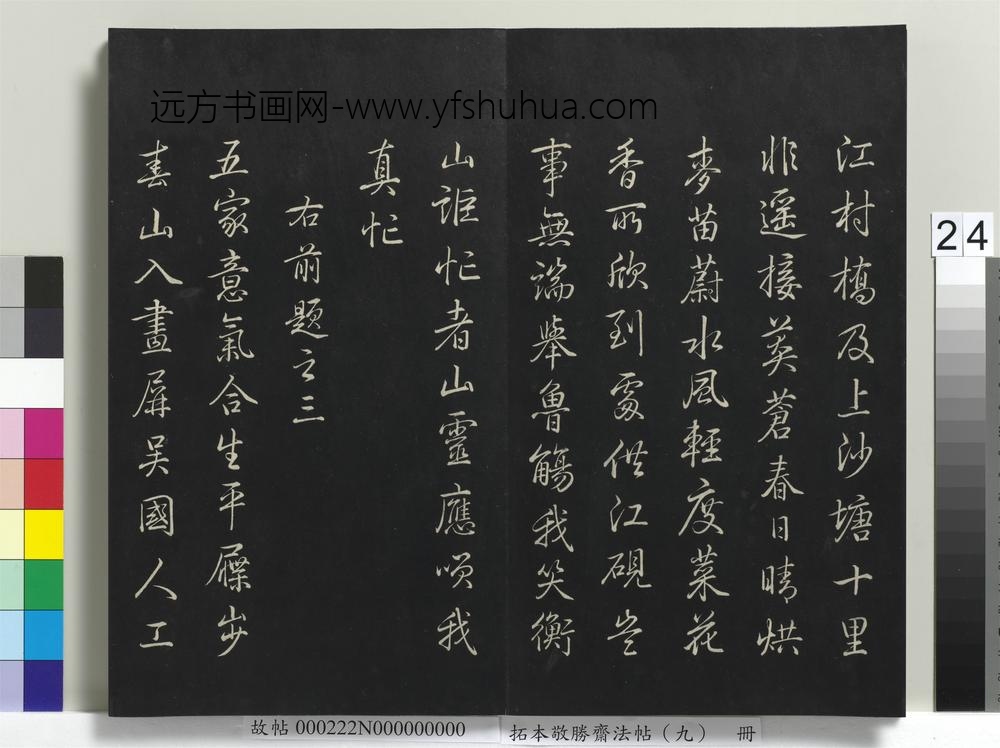 江村橋及上沙塘十里
非遥接莽蒼春日晴烘
麥苗蔚水風輕度菜花
香所欣到處供江硯豈
事無端舉魯觴我笑衡
山誰忙者山靈應我
真忙
右前題之三
五家意氣合生平屧步
春山入畫屏吳國人工
远方书画网-www.yfshuhua.com
24
故帖 000222N000000000
拓本敬勝齋法帖（九） 冊